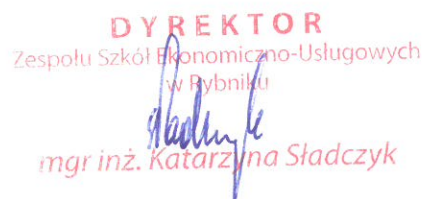 DYREKTOR
Zespołu Szkół Ekonomiczno-Usługowych
w Rybniku
mgr inż. Katarzyna Sładczyk